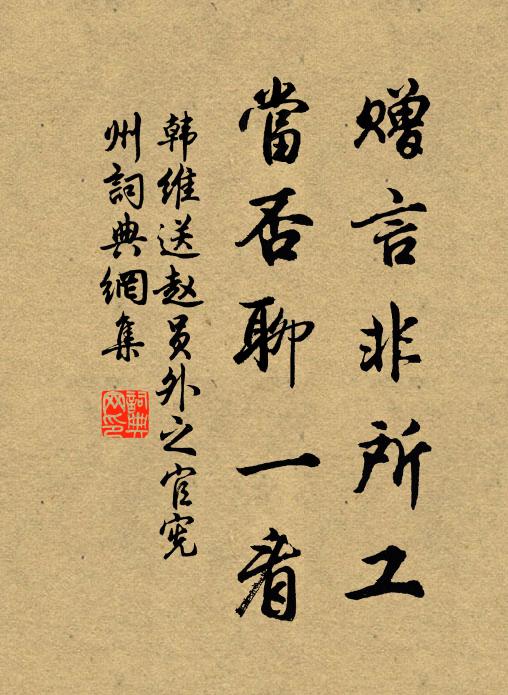 赠言非所工
當否聊一看
韩维送赵员外之官宪
州詞典網集
詞典
网印